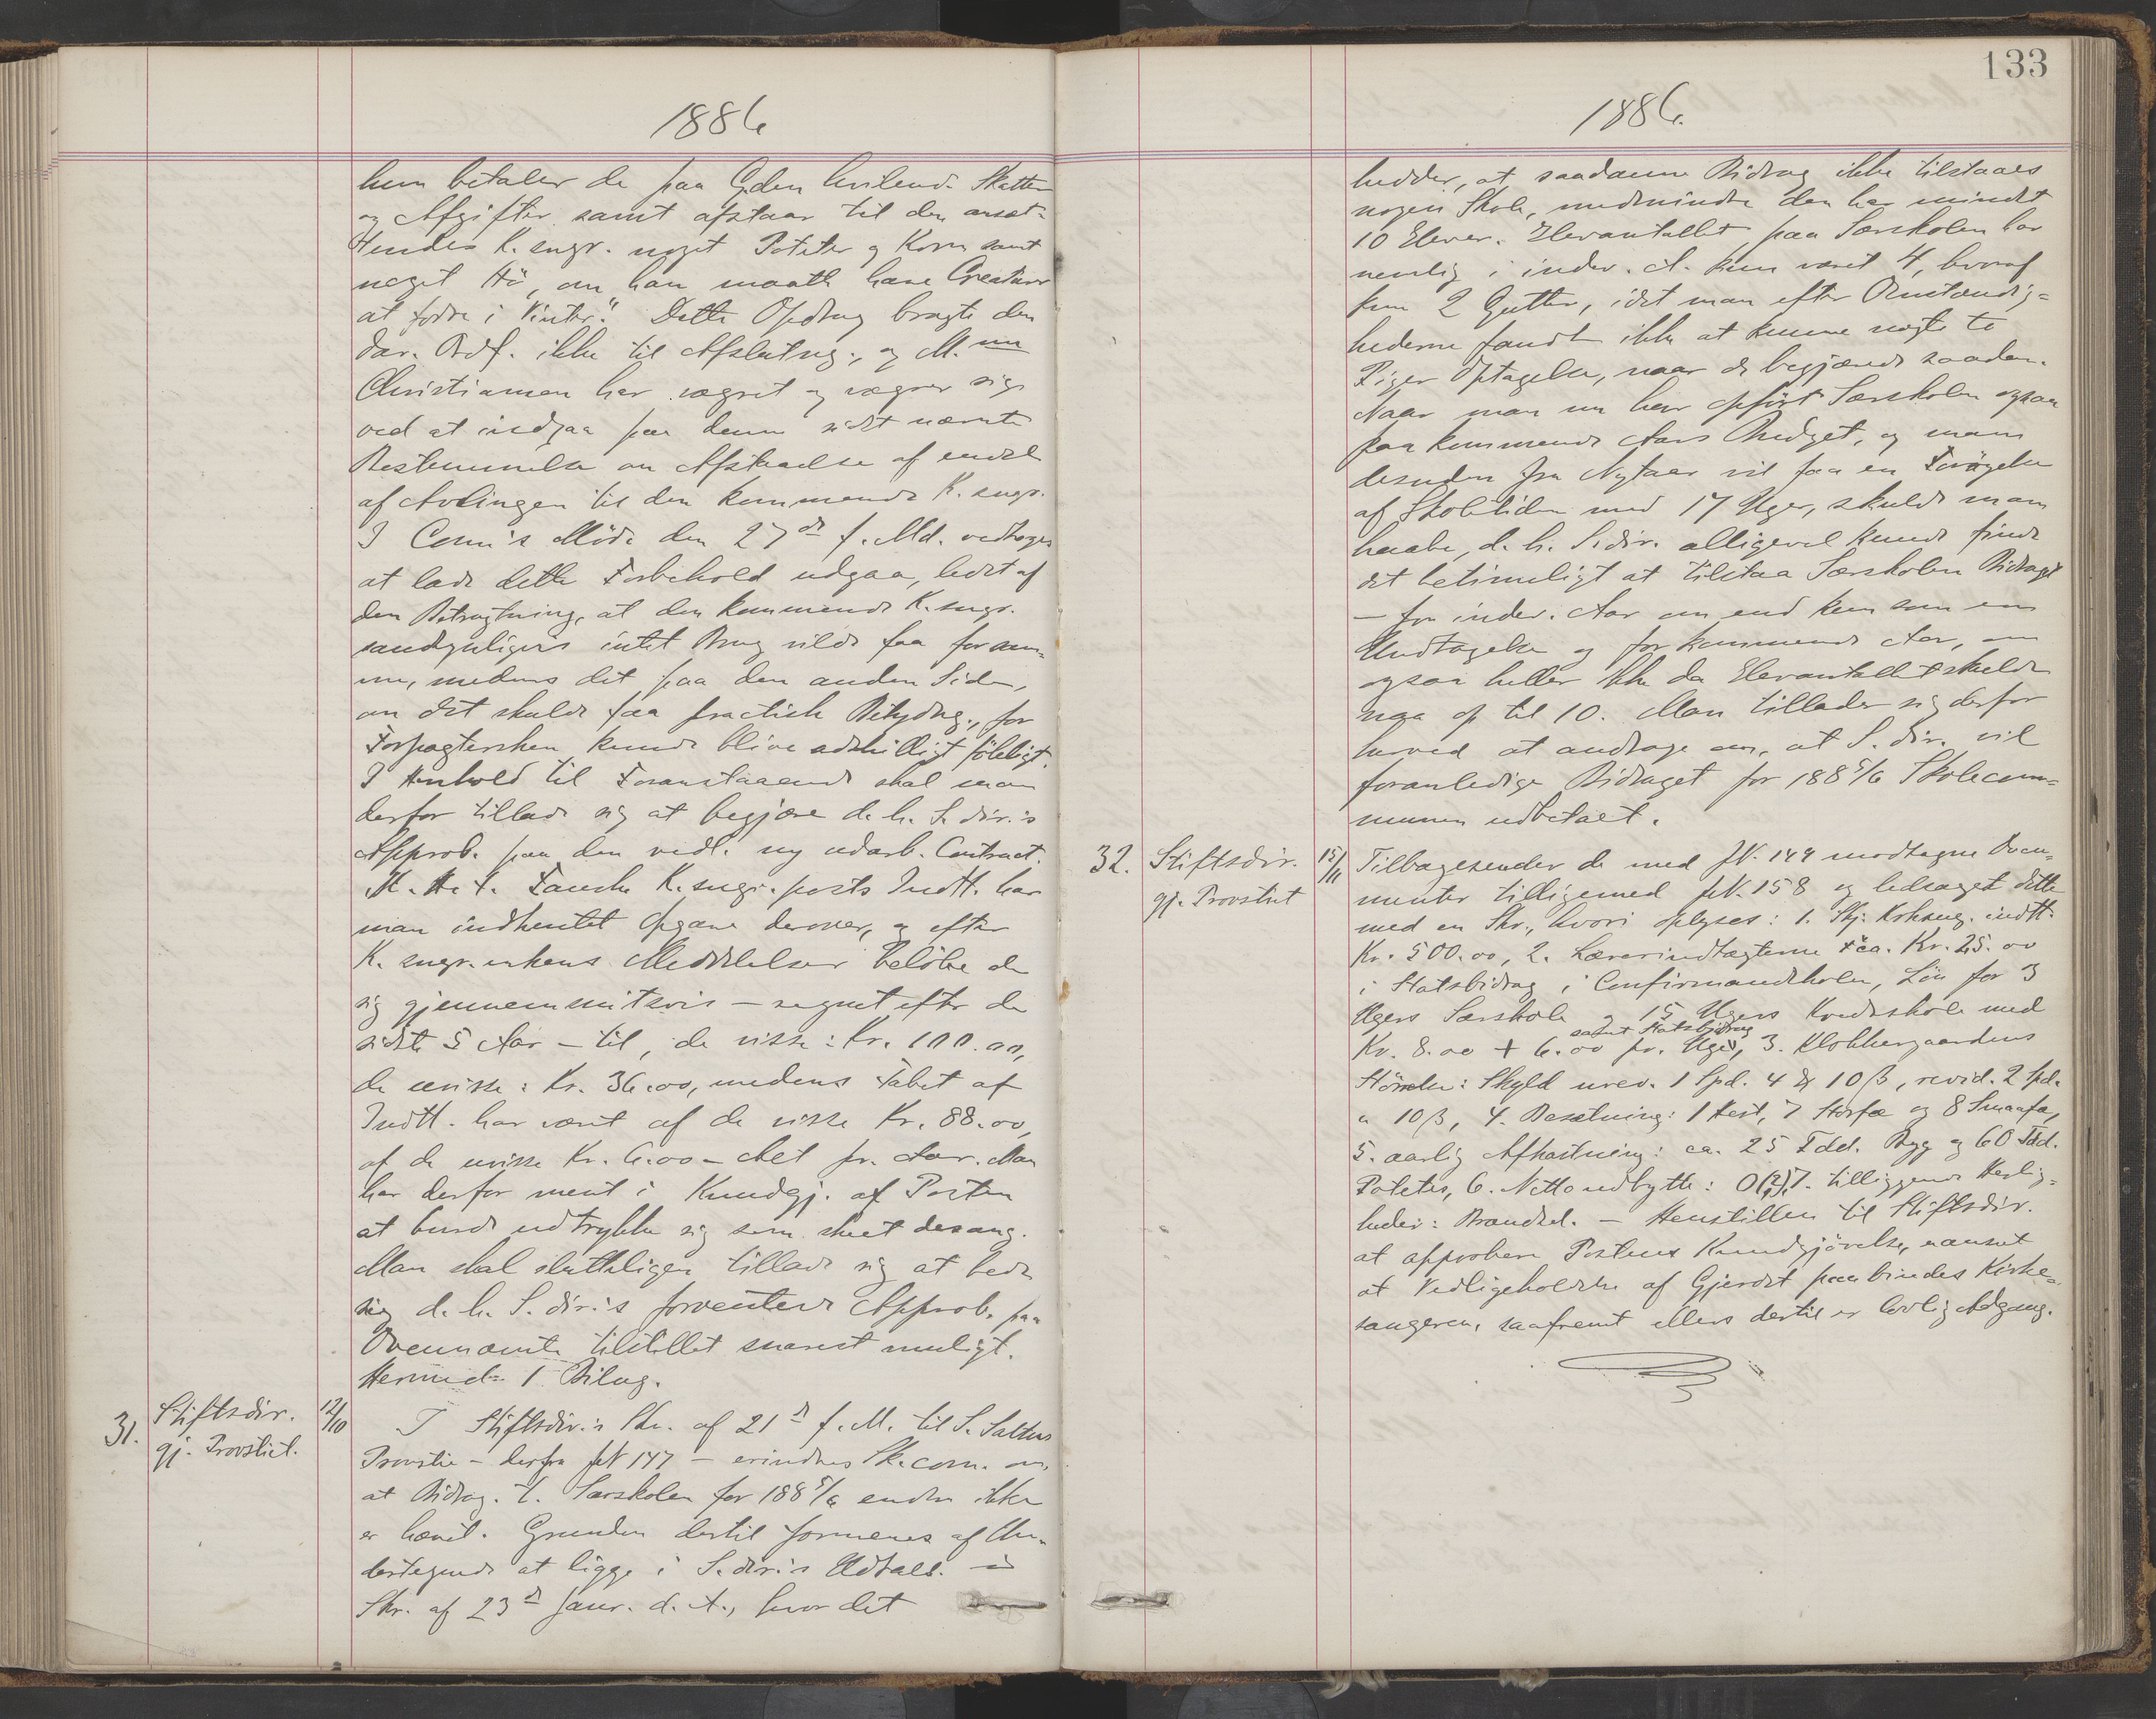 1886
hun betaler de paa Gden hvilende Skatter
og Afgifter samt afstaar til den ansæt-
tendes K. sngr. noget Poteter og Korn samt
noget Hö, om han maatte have Creaturer
at fodre i Vinter." Dette Opdrag bragte den
dav. Ordf. ikke til Afslutng., og M. nu
Christiansen har vægret og vægrer sig
ved at indgaa paa denne sidst nævnte
Bestemmelse om Afstaaelse af endel
af Avlingen til den kommende K. sngr.
I Com's Möde den 27de f. Md. vedtoges
at lade dette Forbehold udgaa, ledet af
den Betragtning, at den kommende K. sngr.
sandsynligvis intet Brug vilde faa for sam-
me, medens det paa den anden Side,
om det skulde faa practisk Betydng., for
Forpagtersken kunde blive adskilligt föleligt.
I Henhold til Foranstaaende skal man
derfor tillade sig at begjære d. h. S. dir.'s
Approb. paa den vedl. ny udarb. Contract.
M. H. t. Fauske K. sngr. posts Indtt. har
man indhentet Opgave derover, og efter
K. sngr. enkens Meddelelser belöbe de
sig gjennemsnitsvis – regnet efter de
sidste 5 Aar – til, de visse: Kr. 100.00,
de uvisse: Kr. 36.00, medens Tabet af
Indtt. har været af de visse Kr. 88.00,
af de uvisse Kr. 6.00 – Alt pr. Aar. Man
har derfor ment i Kundgj. af Posten
at burde udtrykke sig som skeet desang.
Man skal slutteligen tillade sig at bede
sig d. h. S. dir.'s forventede Approb. paa
Ovennævnte tilstillet snarest muligt.
Hermed 1 Bilag.
31. Stiftsdir. 12/10 I Stiftsdir.'s Skr. af 21de f. M. til S. Saltens
gj. Provstiet. Provsti – derfra JN 147 – erindres Sk. com. om,
at Bidrag. t. Særskolen for 1885/6 endnu ikke
er hævet. Grunden dertil formenes af Un-
dertegnede at ligge i S. dir.'s Udtal. i
Skr. af 23de Janr. d. A., hvor det
133
1886.
hedder, at saadanne Bidrag ikke tilstaaes
nogen Skole, medmindre den har mindst
10 Elever. Elevantallet paa Særskolen har
nemlig i indev. A. kun været 4, hvoraf
kun 2 Gutter, idet man efter Omstændig-
hederne fandt ikke at kunne nægte to
Piger Optagelse, naar de begjærede saadan.
Naar man nu har opfört Særskolen ogsaa
paa kommende Aars Budget, og man
desuden fra Nytaar vil faa en Forögelse
af Skoletiden med 17 Uger, skulde man
haabe, d. h. S. dir. alligevel kunde finde
det betimeligt at tilstaa Særskolen Bidraget
– for indev. Aar om end kun som en
Undtagelse og for kommende Aar, om
ogsaa heller ikke da Elevantallet skulde
naa op til 10. Man tillader sig derfor
herved at andrage om, at S. dir. vil
foranledige Bidraget for 1885/6 Skolecom-
munen udbetalt.
32. Stiftsdir. 15/11 Tilbagesender de med JN. 149 modtagne Docu-
gj. Provstiet menter tilligemed JN. 158 og ledsaget dette
med en Skr., hvori oplyses: 1. Skj. Krksng. indtt.
Kr. 500.00, 2. Lærerindtægterne + ca. Kr. 25.00
i Statsbidrag i Confirmandskolen, Lön for 3
Ugers Særskole og 15 Ugers Kredsskole med
samt Statsbidrag
Kr. 8.00 + 6.00 pr. Uge, 3. Klokkergaardens
Störrelse: Skyld urev. 1 Spd. 4 10 ß, revid. 2 Spd.
" 10 ß, 4. Besætning: 1 Hest, 7 Storfæ og 8 Smaafæ,
5. aarlig Afkastning: ca. 25 Tdd. Byg og 60 Tdd.
Poteter, 6. Nettoudbytte: 0 (?), 7. tilliggende Herlig-
heder: Brændsel. – Henstillen til Stiftsdir.
at approbere Postens Kundgjörelse, uanset
at Vedligeholdelse af Gjerdet paabindes Kirke-
sangeren, saafremt ellers dertil er lovlig Adgang.